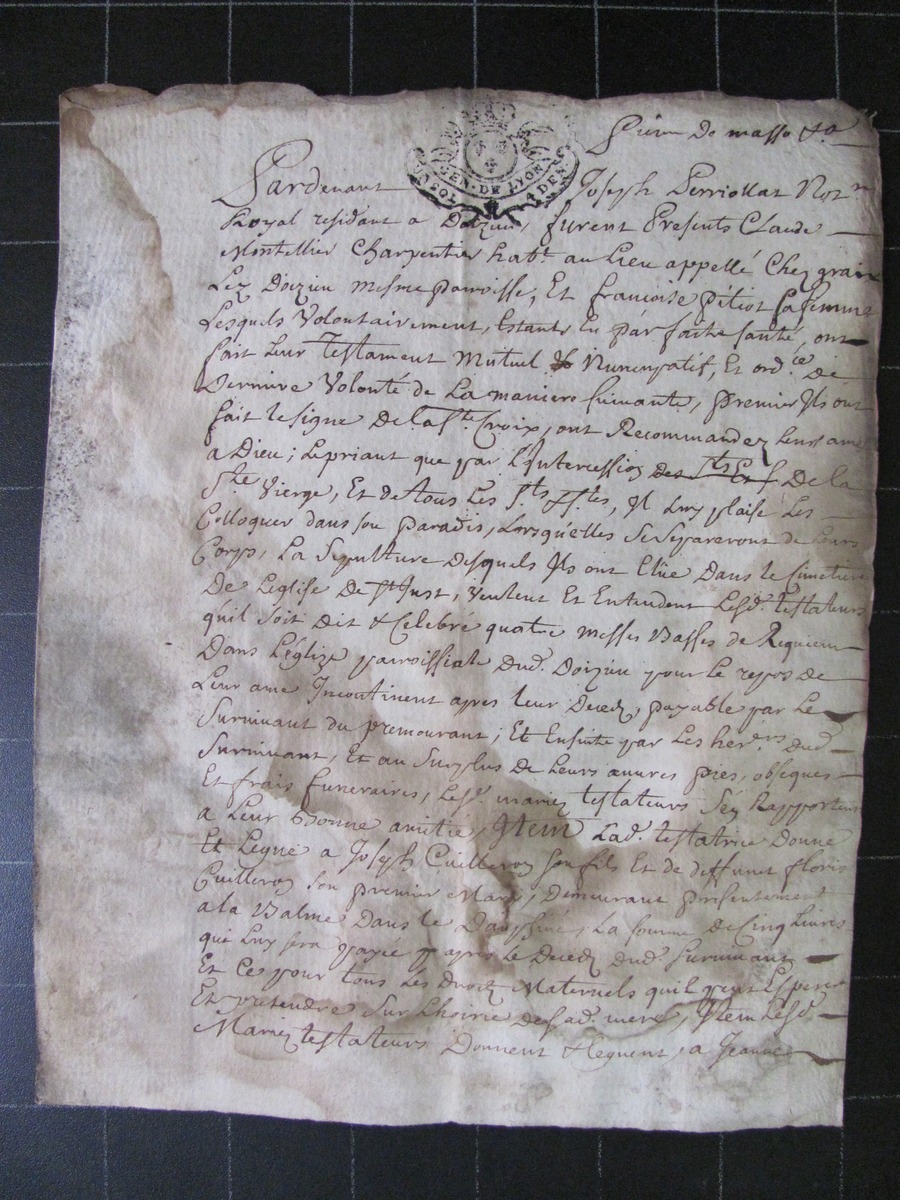 de masso
GEN. DE LYON
SOL
DEN
Pardevant Joseph Perriollat Not.re
Royal résidant a Doizieu, furent Presents Claude
Montellier Charpentier hab.t au Lieu appellé Chez grain
Lez Doizieu mesme parroisse, Et francoise pitiot sa femme
Lesquels Volontairement, Estants En parfaite santé, ont
fait Leur Testament Mutuel Nuncupatif, Et ord.ce de
Derniere Volonté de La maniere suivante, premier Ils ont
fait le signe De la S.te Croix, ont Recommandez Leurs ame
a Dieu; Le priant que par L'Intercession des Sts Et S De la
S.te Vierge, Et de tous Les S.ts S.tes, Il Luy plaise Les
Colloquer dans son paradis, Lorsquelles Se Separeront de Leurs
Corps, La Sepulture desquels Ils ont Elüe Dans le Cimetiere
De Leglise De S.t Just, veulent Et Entendent Lesd. testateurs
quil soit dit & Celebré quatre messes Basses de Requiem
Dans L'Eglize parroissiale dud. Doizieu pour le repos de
Leur ame Incontinent apres leur Decedz, payable par Le
Survivant du premourant; Et Ensuite par Les her.ers dud.
Survivant, Et au Surplus de Leurs œuvres pies, obseques
Et frais funeraires, Lesd. mariez testateurs S'en Rapportent
a Leur Bonne amitié, Item Lad. testatrice Donne
Et Legue a Joseph Cuilleron son fils Et de deffunt floris
Cuilleron son premier Mary, Demeurant présentement
a la Balme Dans le Dauphiné, La somme de Cinq Livres
qui Luy sera payée apres Le Decedz dud. Survivant
Et Ce pour tous Les Droitz Maternels quil peut Esperer
Et pretendre Sur Lhoirie de sad. mere, Item Lesd.
Mariez testateurs Donnent & Leguent, a Jeanne